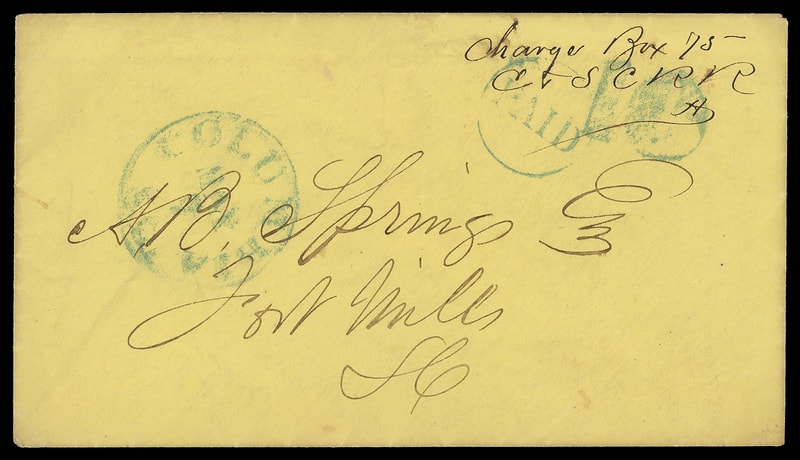 Charge Box 75
C & S C R R
PAID 10
COLUMBIA
A. B. Springs Esq
Fort Mills
SC